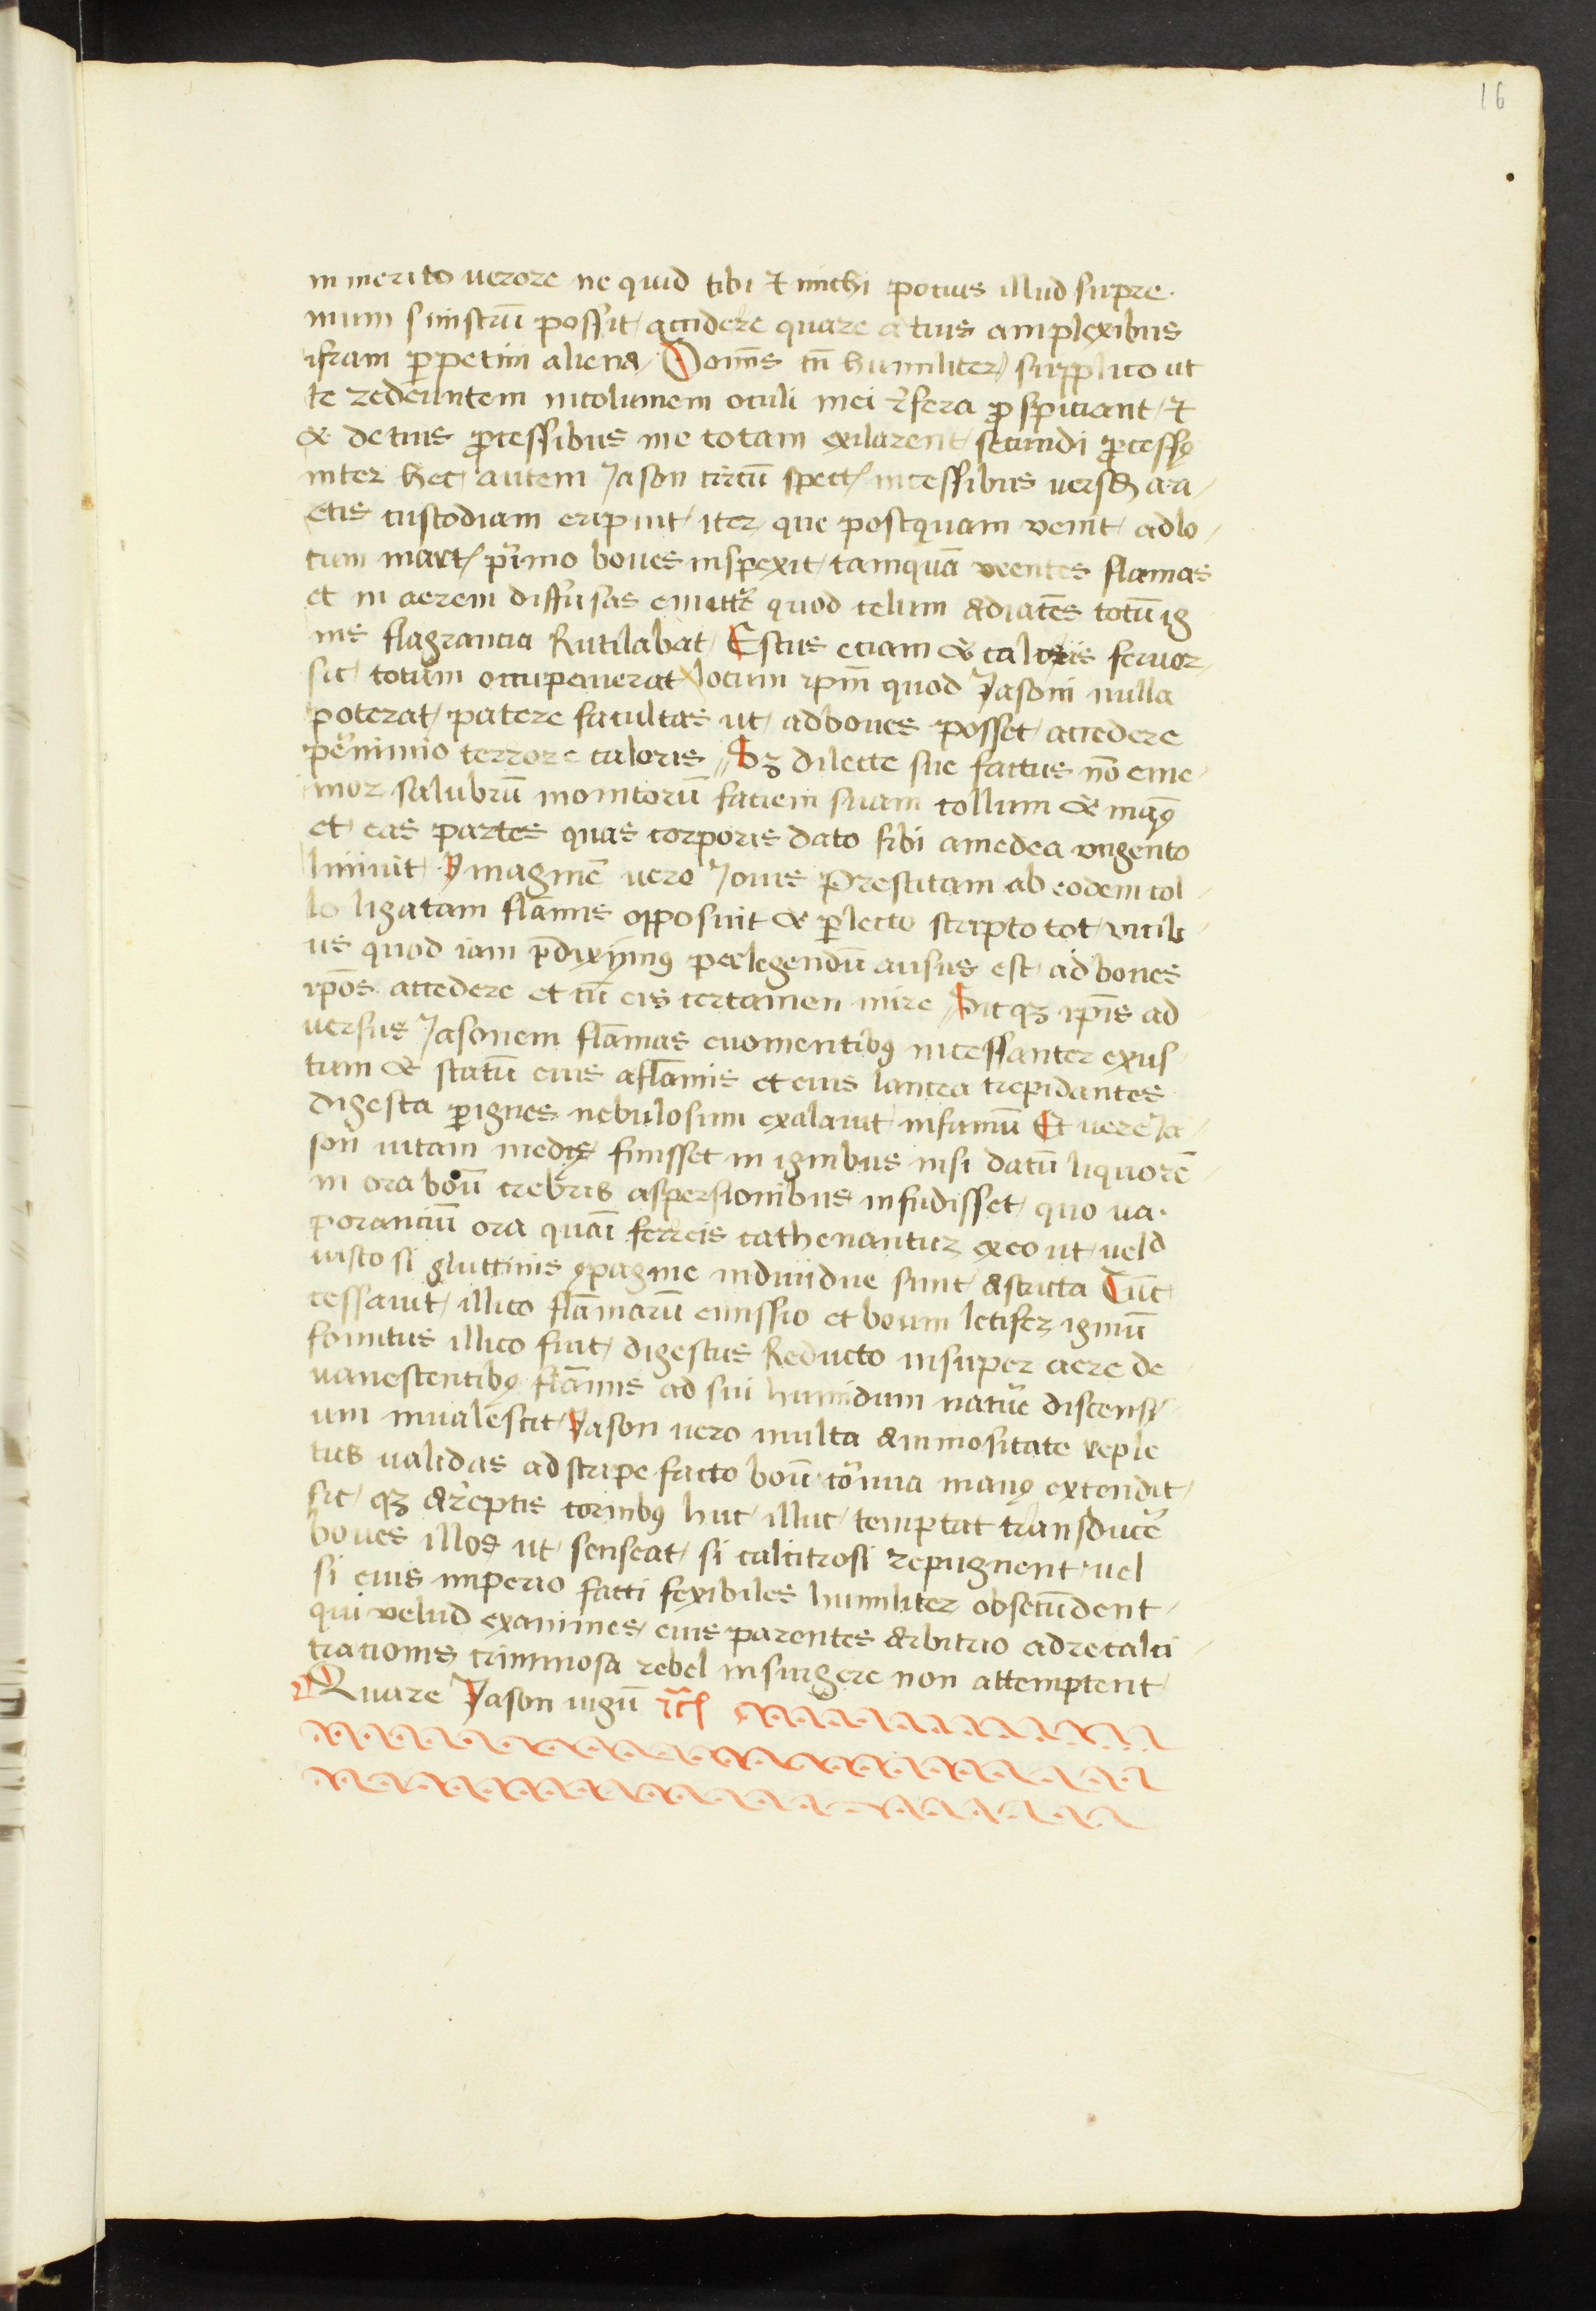 16
in merito uerore ne quid tibi ⁊ michi potius illud supre
mum sinistrū possit accidere quare a tuis amplexibus
ifiam ꝑpetim aliena Doīnis tn̄ humiliter supplico ut
te redeuntem incolumem oculi mei prospiciant ⁊
& de tuis processibus me totam exilarent secundi processꝰ
inter hec autem Jason circū incessibus ara
etis custodiam eripuit iter que postquam venit ad lo
cum mart primo boues inspexit tamquā veentes flamas
et in aerem diffusas emittere quod celum adiacēs totū ig
nis flagrancia Rutilabat Estus eciam & caloris feruor
sic totum occupauerat locum ipm̄ quod Jasoni nulla
poterat patere facultas ut ad boues posset accedere
pre nimio terrore caloris Sꝫ dilecte sue factus nō eme
mor salubrū monitorū faciem suam collum & manꝰ
et eas partes quas corporis dato sibi a medea vngento
liniuit Ymaginē uero Jouis Prestitam ab eodem col
lo ligatam flāmis opposuit & ꝑlecto scripto tot uicib
us quod iam pdiximꝰ perlegendū ausus est ad boues
ip̄os accedere et cū eis certamen inire Sicqꝫ ip̄is ad
uersus Jasonem flāmas euomentibꝰ incessanter exus
tum & scutū eius a flāmis et eius lancea trepidantes
digesta ꝑ ignes nebulosum exalauit in fumū Et uere Ja
son uitam medijs finisset in ignibus nisi datū liquorē
in ora boū crebris aspersionibus infudisset quo ua
porancium ora quā ferreis cathenantur ex eo ut uelud
uisco si gluttinis ꝯpagine indiuidue sunt astricta Tūc
cessauit illico flāmarū emissio et boum letifer igniū
fomitus illico fuit digestus Reducto insuper aere de
uanescentibꝰ flāmis ad sui humidum nature discens
um inualescit Jason uero multa animositate reple
tus validas ad scripe facto boū cornua manꝰ extendit
sic qꝫ arreptis cornibꝰ huc illuc temptat transducere
boues illos ut senseat si calcitrosi repugnent uel
si eius imperio facti fexibiles humiliter obsecūdent
qui velud exanimes eius parentes arbitrio ad recalci
tracionis criminosa rebel insurgere non attemptent
Quare Jason iugū